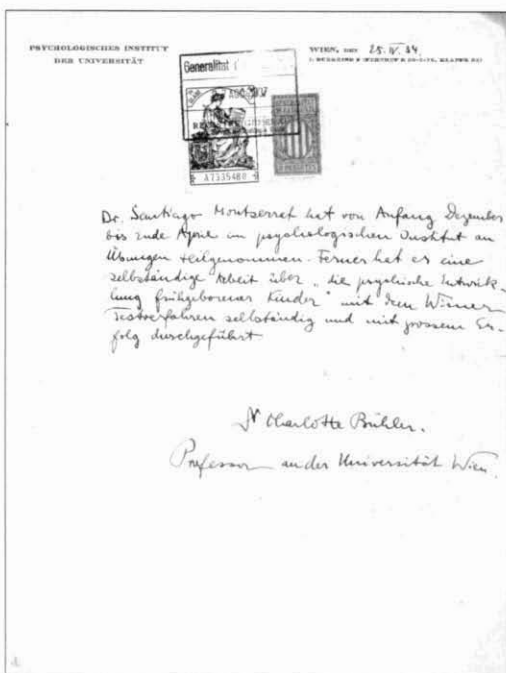 PSYCHOLOGISCHES INSTITUT
DER UNIVERSITÄT
WIEN, DEN 25. IV. 34.
Generalitat
AGO 1937
A7335480
Dr. Santiago Montserrat hat von Anfang Dezember
bis Ende April am psychologischen Institut an
Übungen teilgenommen. Ferner hat er eine
selbständige Arbeit über „die psychische Entwick-
lung frühgeborener Kinder" mit dem Wiener
Testverfahren selbständig und mit grossem Er-
folg durchgeführt
Dr Charlotte Bühler.
Professor an der Universität Wien.